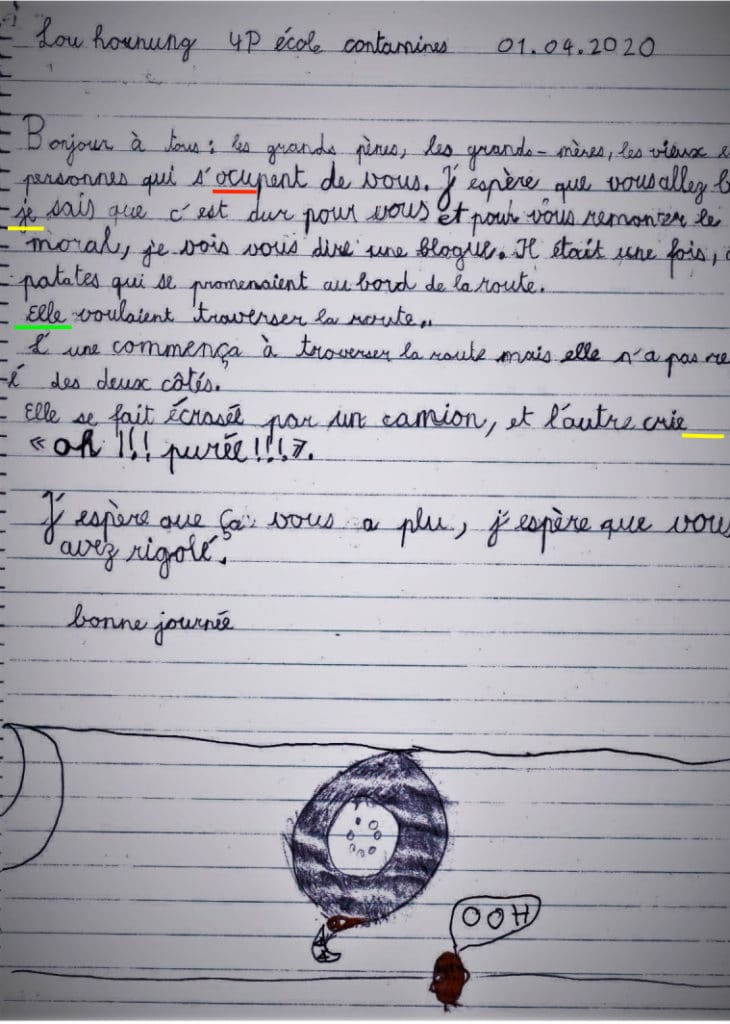 Lou hornung 4P école contamines 01.04.2020
Bonjour à tous : les grands pères, les grands-mères, les vieux
personnes qui s'ocupent de vous. J'espère que vous allez
je sais que c'est dur pour vous et pour vous remonter le
moral, je vois vous dire une blogue. Il était une fois,
patates qui se promenaient au bord de la route.
Elle voulaient traverser la route..
L'une commença à traverser la route mais elle n'a pas
des deux côtés.
Elle se fait écrasée par un camion, et l'autre crie
« oh !!! purée!!!».
J'espère que ça vous a plu, j'espère que vous
avez rigolé.
bonne journée
OOH